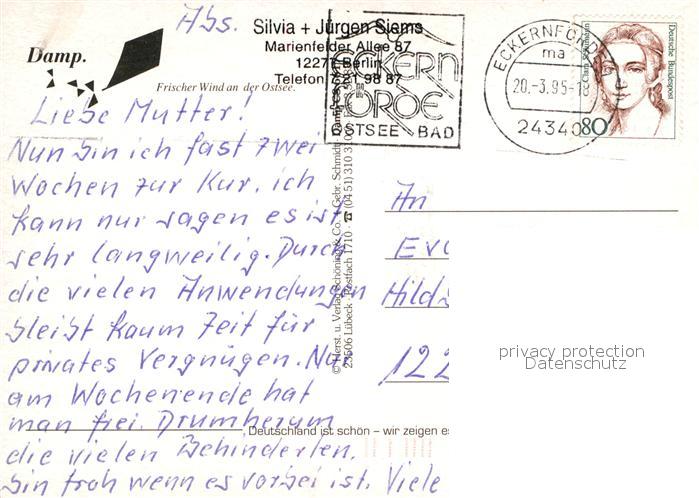 Abs.
Silvia + Jürgen Siems
Marienfelder Allee 87
12277 Berlin
Telefon 721 98 87
Damp.
Frischer Wind an der Ostsee.
ECKERN
FÖRDE
OSTSEE BAD
ECKERNFÖRDE
ma
20.-3.95-18
24340
Clara Schumann
Deutsche Bundespost
80
Liebe Mutter!
Nun bin ich fast zwei
Wochen zur Kur, ich
kann nur sagen es ist
sehr langweilig. Durch
die vielen Anwendungen
bleibt kaum Zeit für
privates Vergnügen. Nur
am Wochenende hat
man frei. Drumherum
die vielen Behinderten.
Bin froh wenn es vorbei ist. Viele
23506 Lübeck · Postfach 1710 · ☎ (04 51) 310 3
An
Ev
Hilds
122
privacy protection
Datenschutz
Deutschland ist schön – wir zeigen es